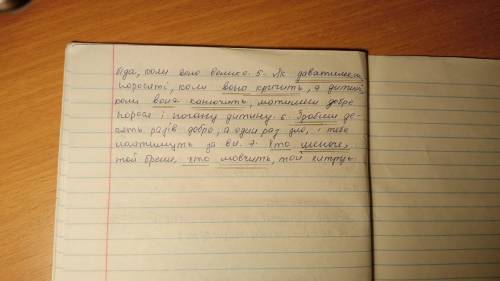 біда, коли воно велике. 5. Як даватимеш
поросяті, коли воно кричить, а дитині,
коли вона канючить, матимеш добре
порося і погану дитину. 6. Зробиш де-
сять разів добро, а один раз зло, і тебе
матимуть за ви. 7. Хто шепоче,
той бреше, хто мовчить, той хитрує